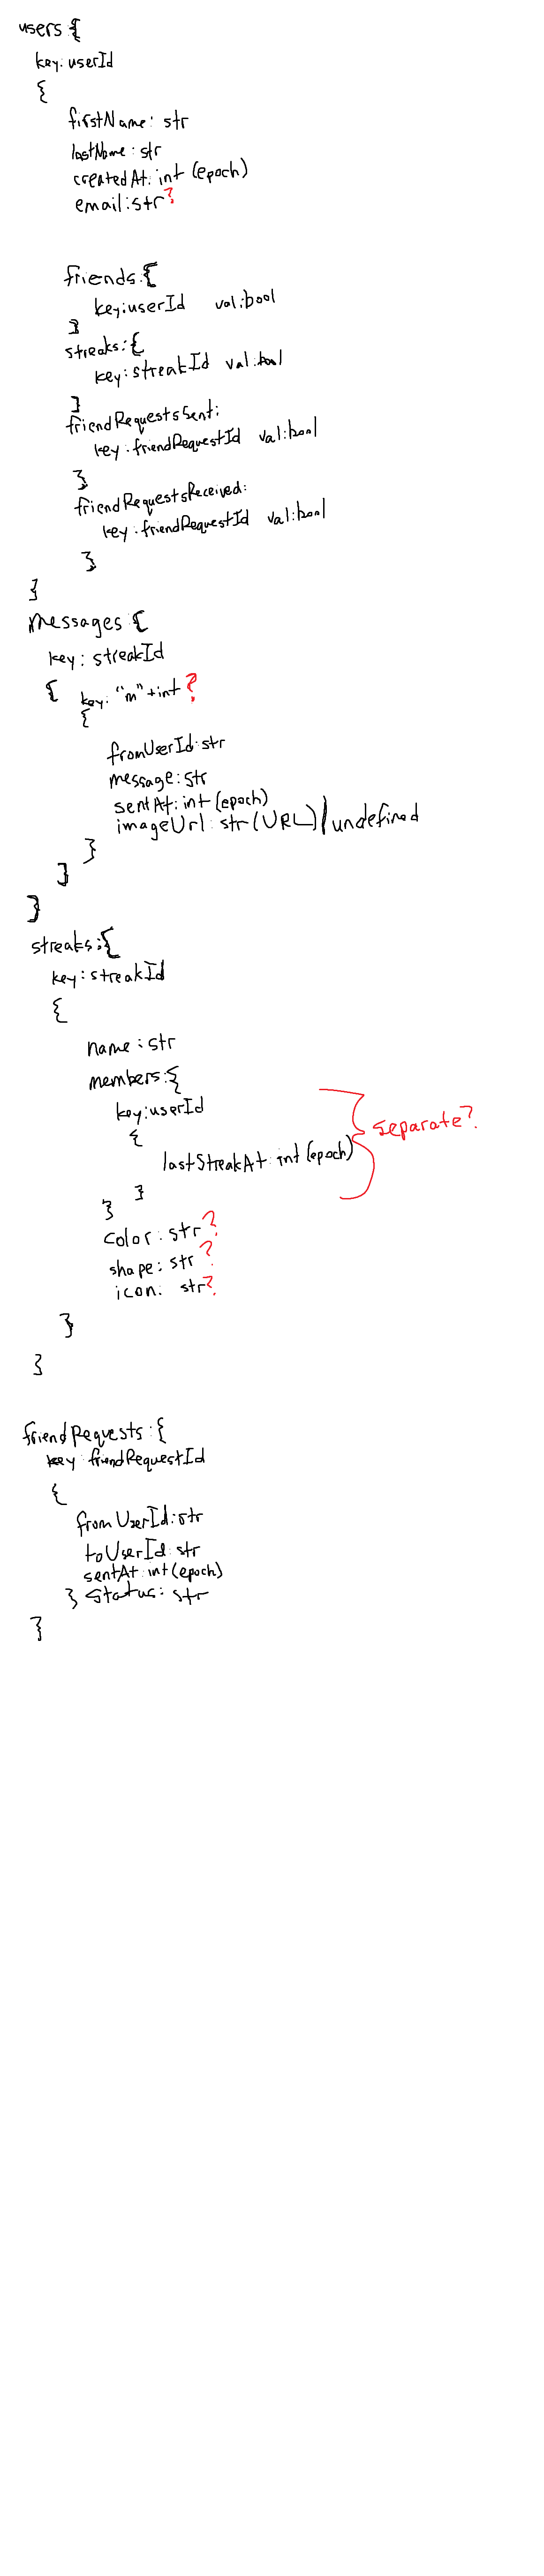 users:{
key:userId
{
firstName: str
lastName:str
createdAt:int (epoch)
email:str?
friends:{
key:userId val:bool
}
streaks:{
key:streakId val:bool
}
friendRequestsSent:
key:friendRequestId val:bool
}
friendRequestsReceived:
key:friendRequestId val:bool
}
}
messages:{
key:streakId
{ key:"m"+int?
{
fromUserId:str
message:str
sentAt:int(epoch)
imageUrl:str(URL)|undefined
}
}
}
streaks:{
key:streakId
{
name:str
members:{
key:userId
{
lastStreakAt:int(epoch)
}
}
separate?
color:str?
shape:str?
icon: str?
}
}
friendRequests:{
key:friendRequestId
{
fromUserId:str
toUserId:str
sentAt:int(epoch)
} status: str
}